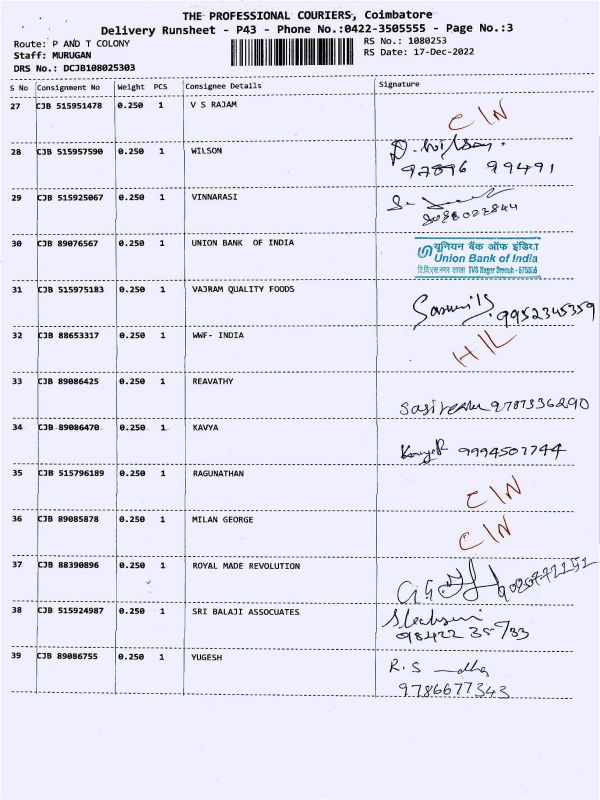 THE PROFESSIONAL COURIERS, Coimbatore
Delivery Runsheet - P43 - Phone No.:0422-3505555 - Page No.:3
Route: P AND T COLONY
RS No.: 1080253
Staff: MURUGAN
RS Date: 17-Dec-2022
DRS No.: DCJB108025303
S No Consignment No Weight PCS Consignee Details Signature
27 CJB 515951478 0.250 1 V S RAJAM
C/N
28 CJB 515957590 0.250 1 WILSON
D. Wilson.
97896 99491
29 CJB 515925067 0.250 1 VINNARASI
30 CJB 89076567 0.250 1 UNION BANK OF INDIA
यूनियन बैंक ऑफ इंडिया
Union Bank of India
31 CJB 515975183 0.250 1 VAJRAM QUALITY FOODS
9952345359
32 CJB 88653317 0.250 1 WWF- INDIA
H/L
33 CJB 89086425 0.250 1 REAVATHY
9787336290
34 CJB 89086470 0.250 1 KAVYA
9994507744
35 CJB 515796189 0.250 1 RAGUNATHAN
C/N
36 CJB 89085878 0.250 1 MILAN GEORGE
C/N
37 CJB 88390896 0.250 1 ROYAL MADE REVOLUTION
38 CJB 515924987 0.250 1 SRI BALAJI ASSOCUATES
98422 35733
39 CJB 89086755 0.250 1 YUGESH
R.S
9786677343